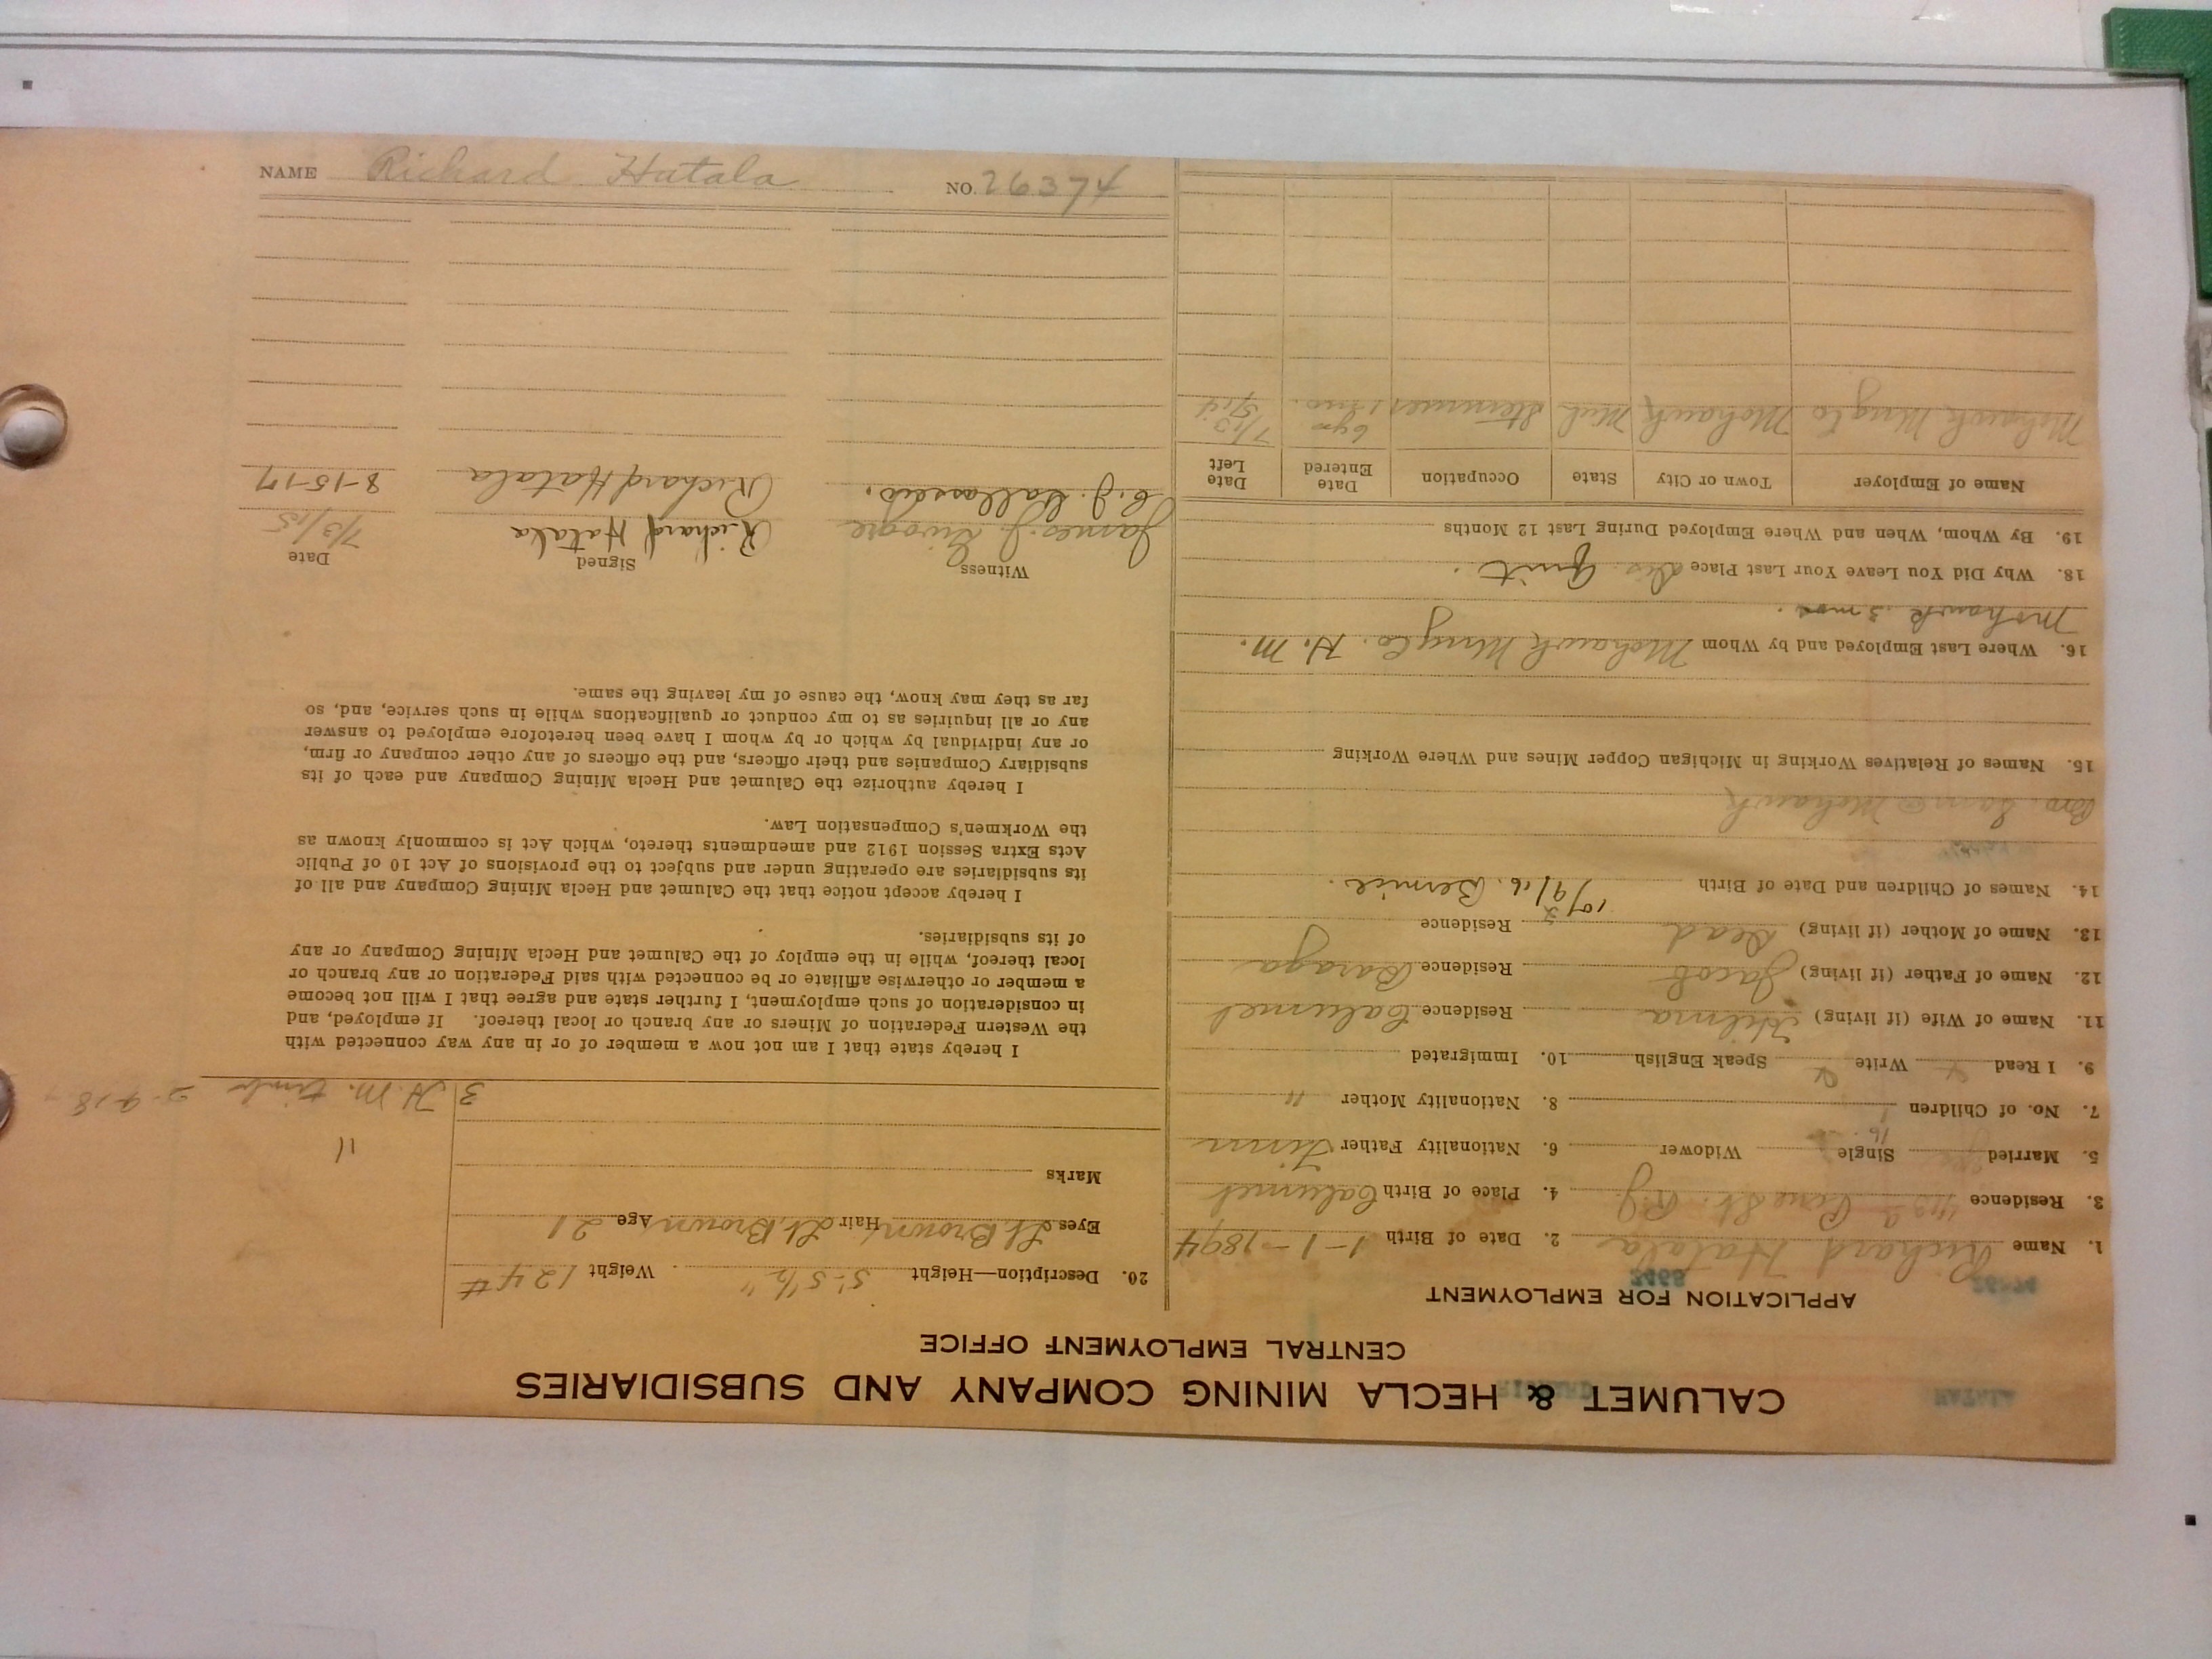 HATALA RICHARD
CALUMET & HECLA MINING COMPANY AND SUBSIDIARIES
CENTRAL EMPLOYMENT OFFICE
APPLICATION FOR EMPLOYMENT
26374
1. Name Richard Hatala 2. Date of Birth 1-1-1894
3. Residence Pine St. R.J. 4. Place of Birth Calumet
5. Married Single Widower 6. Nationality Father Finn
7. No. of Children 1 8. Nationality Mother "
9. I Read Write Speak English 10. Immigrated
11. Name of Wife (if living) Hilma Residence Calumet
12. Name of Father (if living) Jacob Residence Baraga
13. Name of Mother (if living) Dead Residence
14. Names of Children and Date of Birth Bernice.
Bro. Sam @ Mohawk
15. Names of Relatives Working in Michigan Copper Mines and Where Working
16. Where Last Employed and by Whom Mohawk Mng Co. H. M.
Mohawk 3 mos.
18. Why Did You Leave Your Last Place Quit.
19. By Whom, When and Where Employed During Last 12 Months
Name of Employer Town or City State Occupation Date Entered Date Left
Mohawk Mng Co Mohawk Mich
20. Description—Height 5'-5 1/2" Weight 124#
Eyes Lt. Brown Hair Lt. Brown Age 21
Marks
11
3 H. M. 2-9-18
I hereby state that I am not now a member of or in any way connected with
the Western Federation of Miners or any branch or local thereof. If employed, and
in consideration of such employment, I further state and agree that I will not become
a member or otherwise affiliate or be connected with said Federation or any branch or
local thereof, while in the employ of the Calumet and Hecla Mining Company or any
of its subsidiaries.
I hereby accept notice that the Calumet and Hecla Mining Company and all of
its subsidiaries are operating under and subject to the provisions of Act 10 of Public
Acts Extra Session 1912 and amendments thereto, which Act is commonly known as
the Workmen's Compensation Law.
I hereby authorize the Calumet and Hecla Mining Company and each of its
subsidiary Companies and their officers, and the officers of any other company or firm,
or any individual by which or by whom I have been heretofore employed to answer
any or all inquiries as to my conduct or qualifications while in such service, and, so
far as they may know, the cause of my leaving the same.
Witness Signed Date
James J. Richard Hatala 7/3/15
C. J. Richard Hatala 8-15-17
NAME Richard Hatala NO. 26374